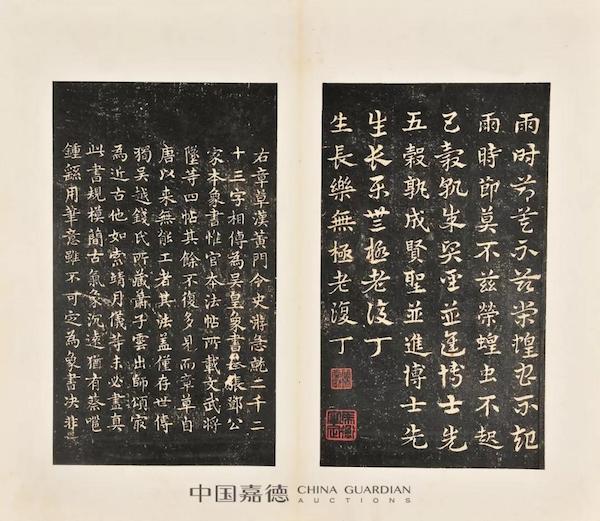 雨時節莫不兹榮蝗虫不起
雨時節莫不兹榮蝗虫不起
五穀孰成賢聖並進博士先
五穀孰成賢聖並進博士先
生長樂無極老復丁
生長樂無極老復丁
右章草漢黃門令史游急就二千二
十三字相傳為吳皇象書張鄧公
家本象書惟官本法帖所載文武將
墜等四帖其餘不復多見而章草自
唐以來無能工者其法蓋僅存世傳
獨吳越錢氏所藏蕭子雲出師頌最
為近古他如索靖月儀等未必盡真
此書規模簡古氣象沉遠猶有蔡邕
鍾繇用筆意雖不可定為象書決非
中国嘉德 CHINA GUARDIAN
AUCTIONS